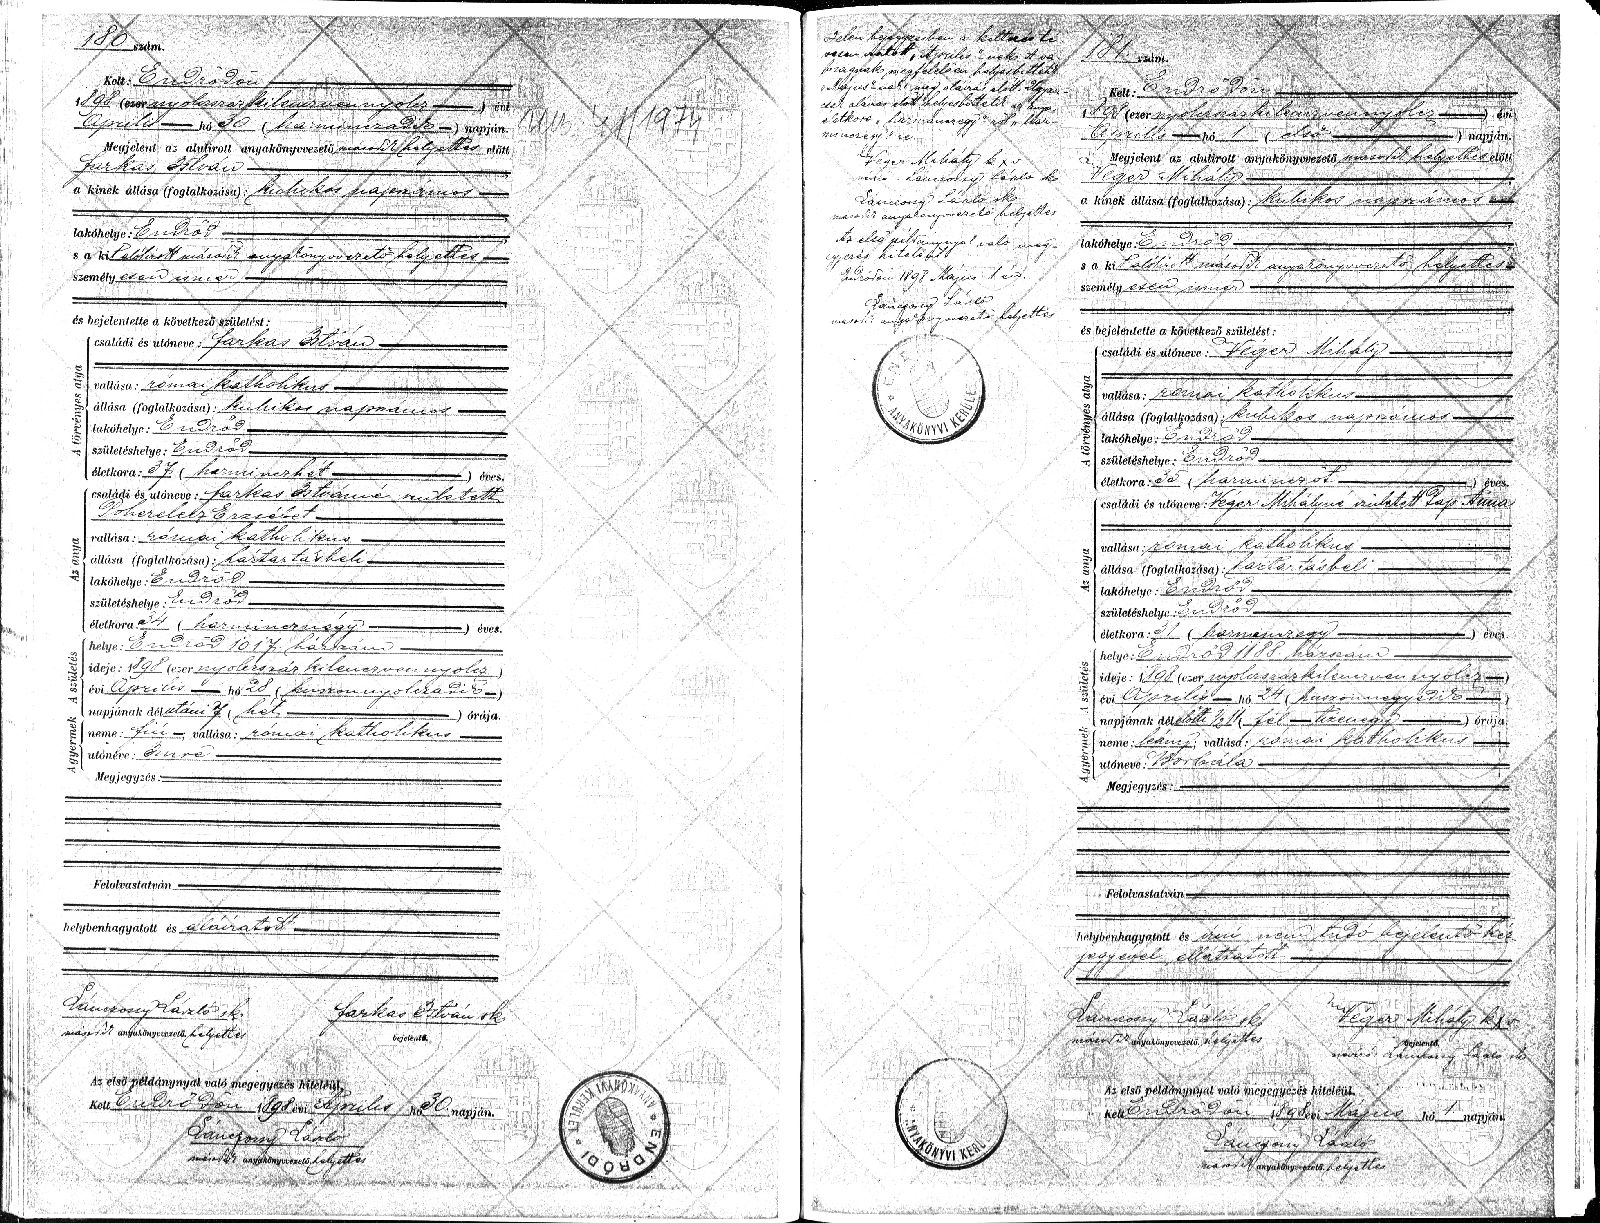 180 szám.
Kelt: Endrődön
1898 (ezer nyolczszáz kilenczvennyolcz) évi
Április hó 30 (harminczadik) napján.
Megjelent az alulirott anyakönyvezető másodk helyettes előtt
Farkas István
a kinek állása (foglalkozása): kubikos napszámos
lakóhelye: Endrőd
s a kit alólirott másodk anyakönyvvezető helyettes
személyesen ismer
és bejelentette a következő születést:
A törvényes atya
családi és utóneve: Farkas István
vallása: római katholikus
állása (foglalkozása): kubikos napszámos
lakóhelye: Endrőd
születéshelye: Endrőd
életkora: 37 (harminczhét) éves.
Az anya
családi és utóneve: Farkas Istvánné született
Erzsébet
vallása: római katholikus
állása (foglalkozása): háztartásbeli
lakóhelye: Endrőd
születéshelye: Endrőd
életkora: 34 (harmincznégy) éves.
A születés
helye: Endrőd 1017 házszám
ideje: 1898 (ezer nyolczszáz kilenczvennyolcz)
évi Április hó 28 (huszonnyolczadik)
napjának délutáni 7 (hét) órája.
A gyermek
neme: fiú vallása: római katholikus
utóneve: Imre
Megjegyzés:
Felolvastatván
helybenhagyatott és aláiratott
Lánczony László sk.
másodk anyakönyvvezető helyettes
Farkas István sk
bejelentő.
Az első példánynyal való megegyezés hiteléül.
Kelt Endrődön 1898 évi Április hó 30 napján.
Lánczony László
másodk anyakönyvvezető helyettes
ENDRŐDI * ANYAKÖNYVI KERÜLET *
Jelen bejegyzésben a keltezésben
"Április"-nak
megfelelően helyesbittetett
"Május"-nak még aláirás előtt.
aláirás előtt helyesbittetett az anya
életkora "harminczegy"-ről "harmincznegy"-re
Véger Mihály k x v
Lánczony László sk
Lánczony László sk
másodk anyakönyvvezető helyettes
Az első példánynyal való megegyezés
hiteléül
Endrődön 1898 Május 1 én.
Lánczony László
másodk anyakönyvvezető helyettes
ANYAKÖNYVI KERÜLE
181 szám.
Kelt: Endrődön
1898 (ezer nyolczszáz kilenczvennyolcz) évi
Április hó 1 (első) napján.
Megjelent az alulirott anyakönyvezető másodk helyettes előtt
Véger Mihály
a kinek állása (foglalkozása): kubikos napszámos
lakóhelye: Endrőd
s a kit alólirott másodk anyakönyvvezető helyettes
személyesen ismer
és bejelentette a következő születést:
A törvényes atya
családi és utóneve: Véger Mihály
vallása: római katholikus
állása (foglalkozása): kubikos napszámos
lakóhelye: Endrőd
születéshelye: Endrőd
életkora: 35 (harminczöt) éves.
Az anya
családi és utóneve: Véger Mihályné született Pap Anna
vallása: római katholikus
állása (foglalkozása): háztartásbeli
lakóhelye: Endrőd
születéshelye: Endrőd
életkora: 31 (harminczegy) éves.
A születés
helye: Endrőd 1188 házszám
ideje: 1898 (ezer nyolczszáz kilenczven nyolcz)
évi Április hó 24 (huszonnegyedik)
napjának délelőtti ½ 11 (fél tizenegy) órája
A gyermek
neme: leány; vallása: római katholikus
utóneve: Borbála
Megjegyzés:
Felolvastatván
helybenhagyatott és irni nem tudó bejelentő kéz
jegyével elláttatott
Lánczony László sk
másodk anyakönyvvezető helyettes
Véger Mihály k x v
bejelentő.
Lánczony László sk
Az első példánynyal való megegyezés hiteléül.
Kelt Endrődön 1898 évi Május hó 1 napján.
Lánczony László
másodk anyakönyvvezető helyettes
ANYAKÖNYVI KERÜL